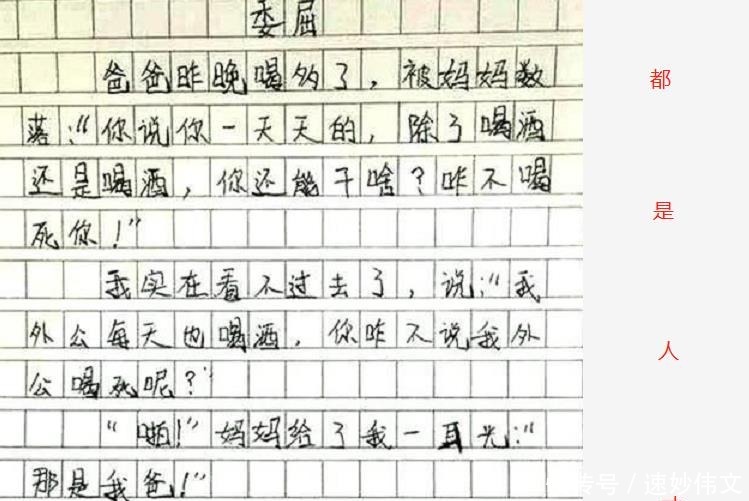 委屈
爸爸昨晚喝多了，被妈妈数
落：“你说你一天天的，除了喝酒
还是喝酒，你还能干啥？咋不喝
死你！”
我实在看不过去了，说：“我
外公每天也喝酒，你咋不说我外
公喝死呢？”
“啪！”妈妈给了我一耳光：“
那是我爸！”
都
是
人
号／速妙伟文